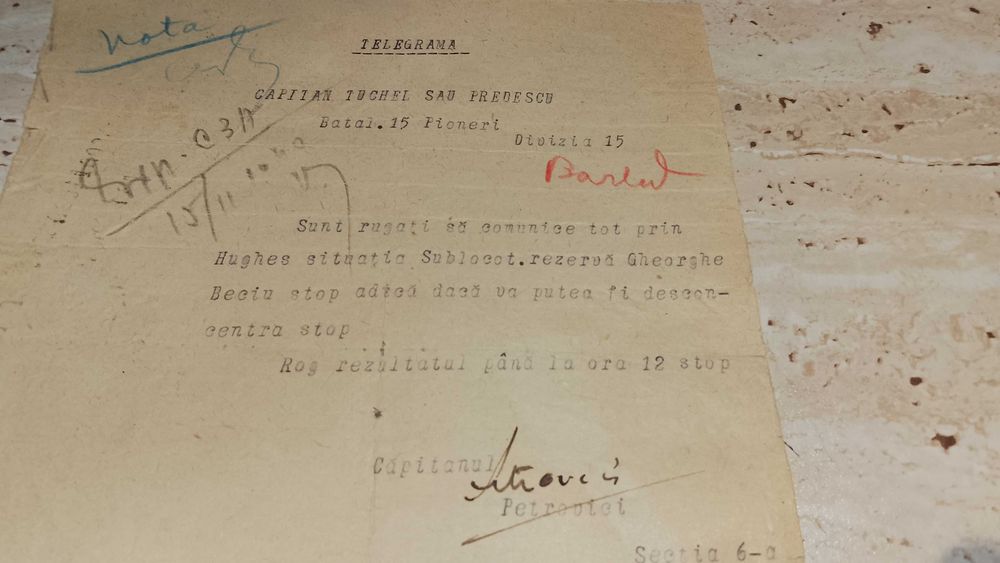 Nota
TELEGRAMA
CAPITAN TUCHEL SAU PREDESCU
Batal.15 Pioneri
Divizia 15
15/11
Sunt rugați să comunice tot prin
Hughes situația Sublocot.rezervă Gheorghe
Beciu stop adică dacă va putea fi descon-
centra stop
Rog rezultatul până la ora 12 stop
Căpitanul
Petrovici
Secția 6-a